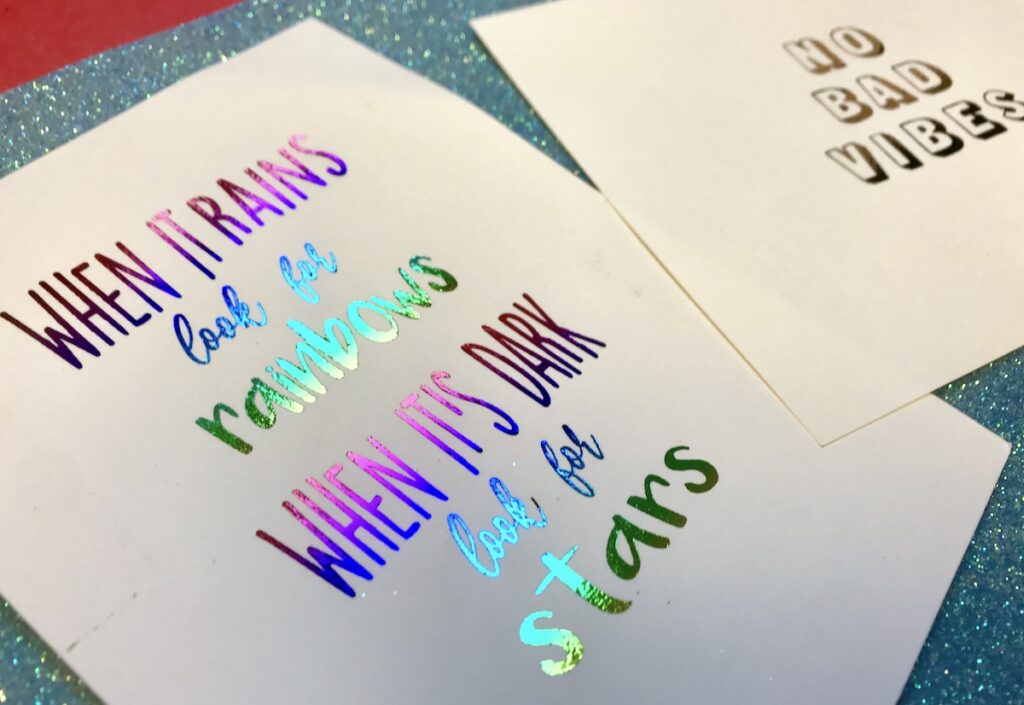 WHEN IT RAINS
look for
rainbows
WHEN IT'S DARK
look for
stars
NO
BAD
VIBES